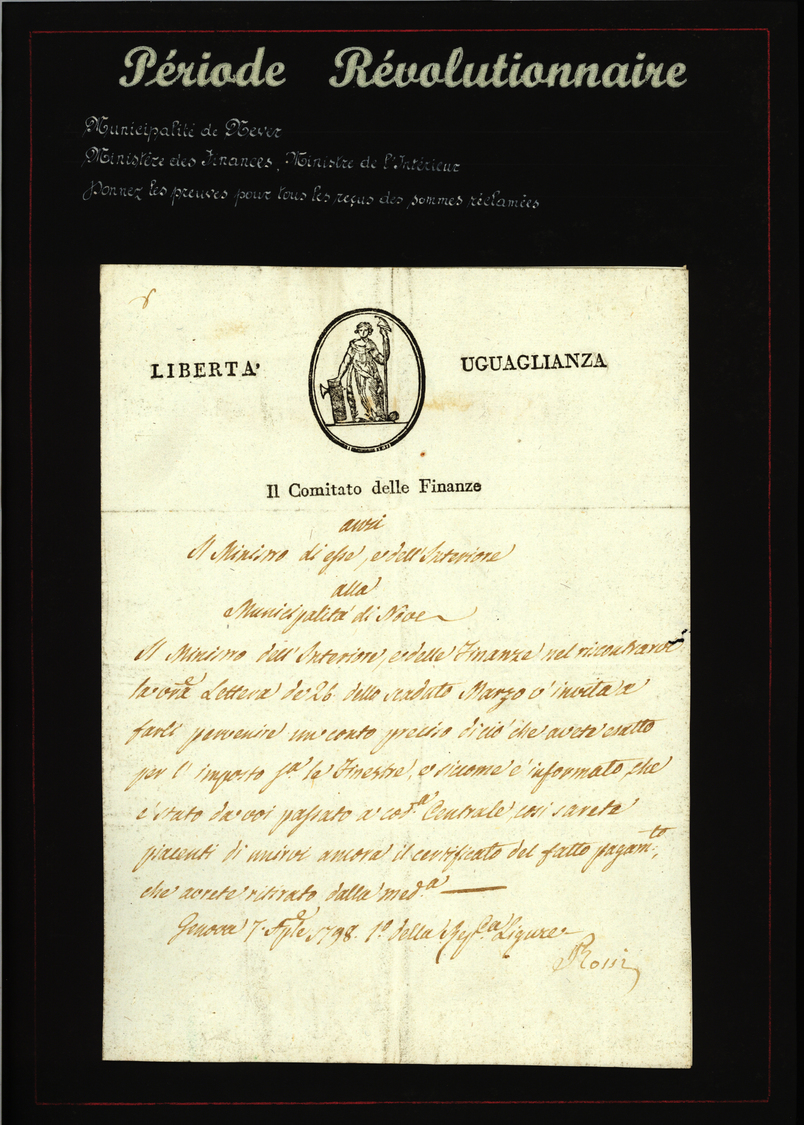 Période Révolutionnaire
Municipalité de Never
Ministère des Finances, Ministre de l'Intérieur
Donnez les preuves pour tous les reçus des sommes réclamées
LIBERTA'
UGUAGLIANZA
Il Comitato delle Finanze
Il Ministro di esse, e dell'Interiore
alla
Municipalità di Nove
Il Ministro dell'Interiore, e delle Finanze nel riscontrare
la vra Lettera de' 26 dello scaduto Marzo v'invita a
farli pervenire un conto preciso di ciò che avete esatto
per l'imposto sa le Finestre, e siccome è informato, che
è stato da voi passato a coda Centrale, così sarete
piacenti di unirvi ancora il certificato del fatto pagamto,
che avrete ritirato dalla meda
Genova 7 1798. 1º della Repca Ligure
Rossi